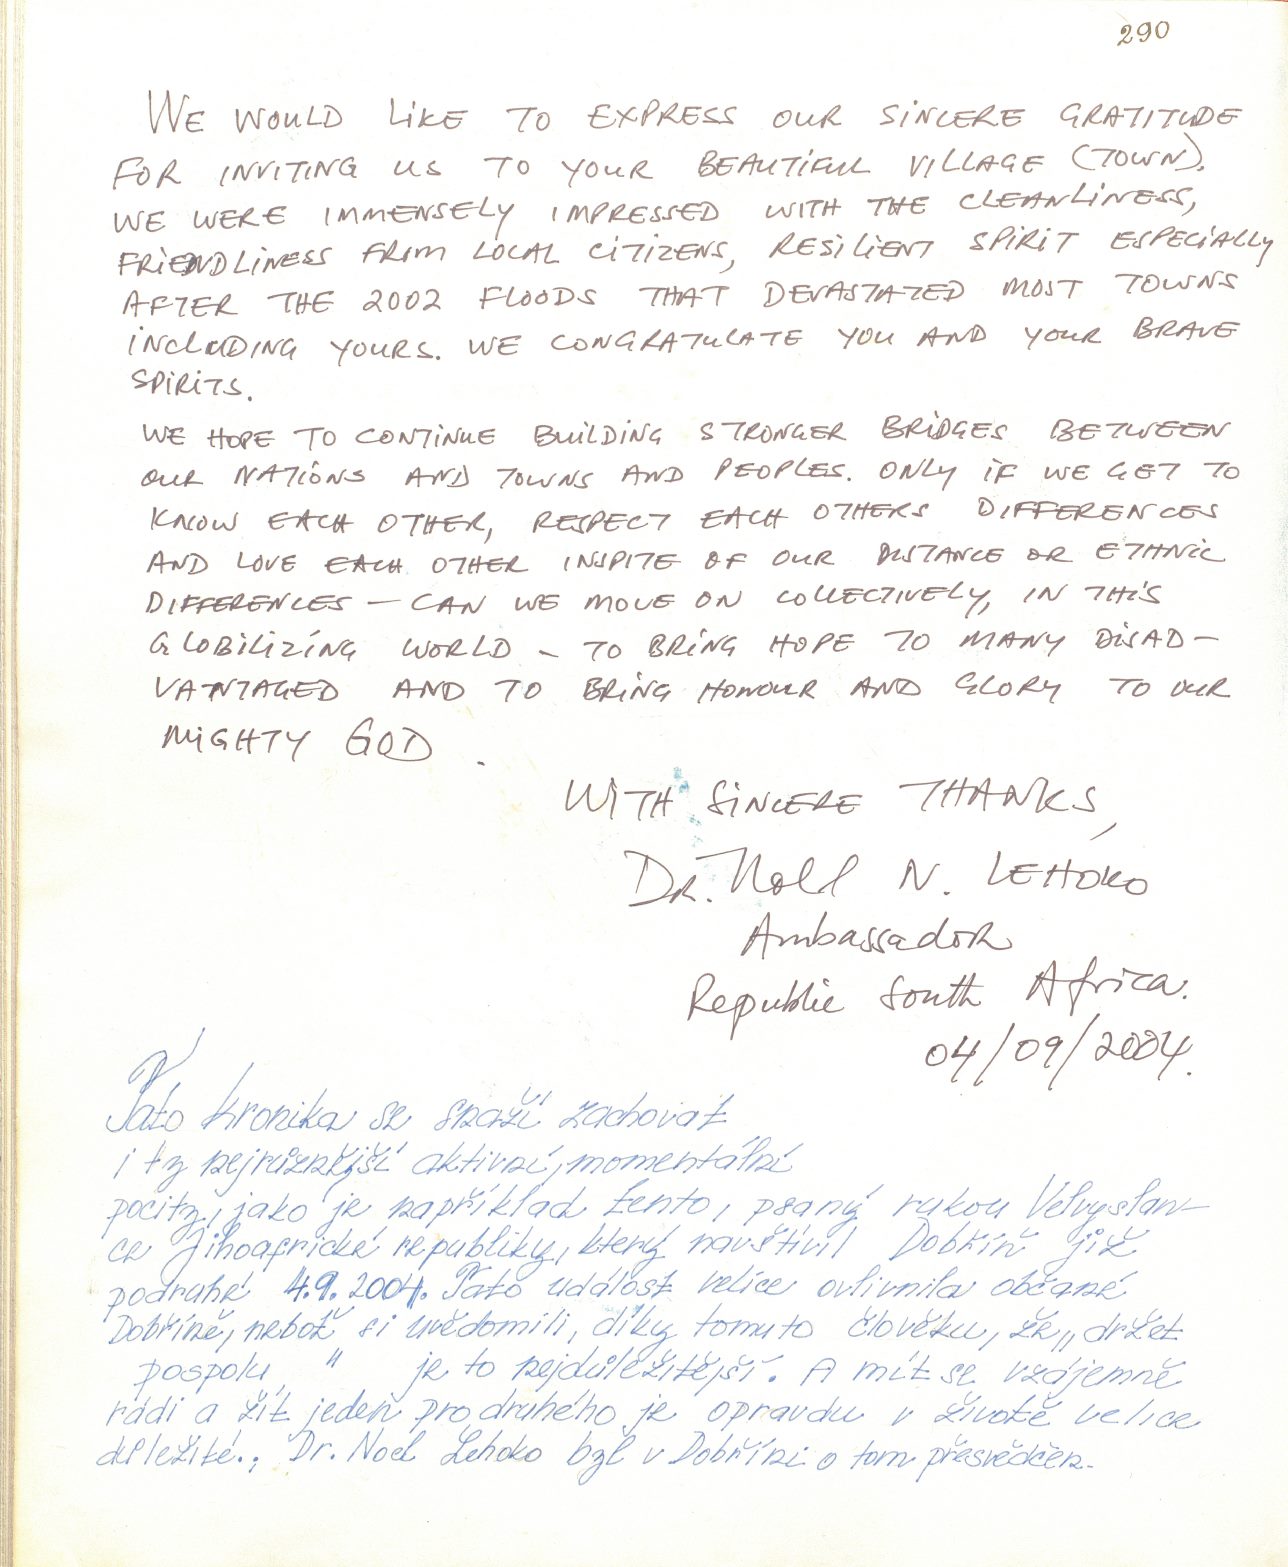 290
WE WOULD LIKE TO EXPRESS OUR SINCERE GRATITUDE
FOR INVITING US TO YOUR BEAUTIFUL VILLAGE (TOWN).
WE WERE IMMENSELY IMPRESSED WITH THE CLEANLINESS,
FRIENDLINESS FRIM LOCAL CITIZENS, RESILIENT SPIRIT ESPECIALLY
AFTER THE 2002 FLOODS THAT DEVASTATED MOST TOWNS
INCLUDING YOURS. WE CONGRATULATE YOU AND YOUR BRAVE
SPIRITS.
WE HOPE TO CONTINUE BUILDING STRONGER BRIDGES BETWEEN
OUR NATIONS AND TOWNS AND PEOPLES. ONLY IF WE GET TO
KNOW EACH OTHER, RESPECT EACH OTHERS DIFFERENCES
AND LOVE EACH OTHER INSPITE OF OUR DISTANCE OR ETHNIC
DIFFERENCES — CAN WE MOVE ON COLLECTIVELY, IN THIS
GLOBILIZING WORLD - TO BRING HOPE TO MANY DISAD-
VANTAGED AND TO BRING HONOUR AND GLORY TO OUR
MIGHTY GOD.
WITH SINCERE THANKS,
DR. Noel N. LEHOKO
Ambassador
Republic South Africa.
04/09/2004.
Tato kronika se snaží zachovat
i ty nejrůznější aktivní, momentální
pocity, jako je například tento, psaný rukou Velvyslan-
ce Jihoafrické republiky, který navštívil Dobříň již
podruhé 4.9.2004. Tato událost velice ovlivnila občané
Dobříně, neboť si uvědomili, díky tomuto člověku, že „držet
pospolu " je to nejdůležitější. A mít se vzájemně
rádi a žít jeden pro druhého je opravdu v životě velice
důležité., Dr. Noel Lehoko byl v Dobříni o tom přesvědčen.